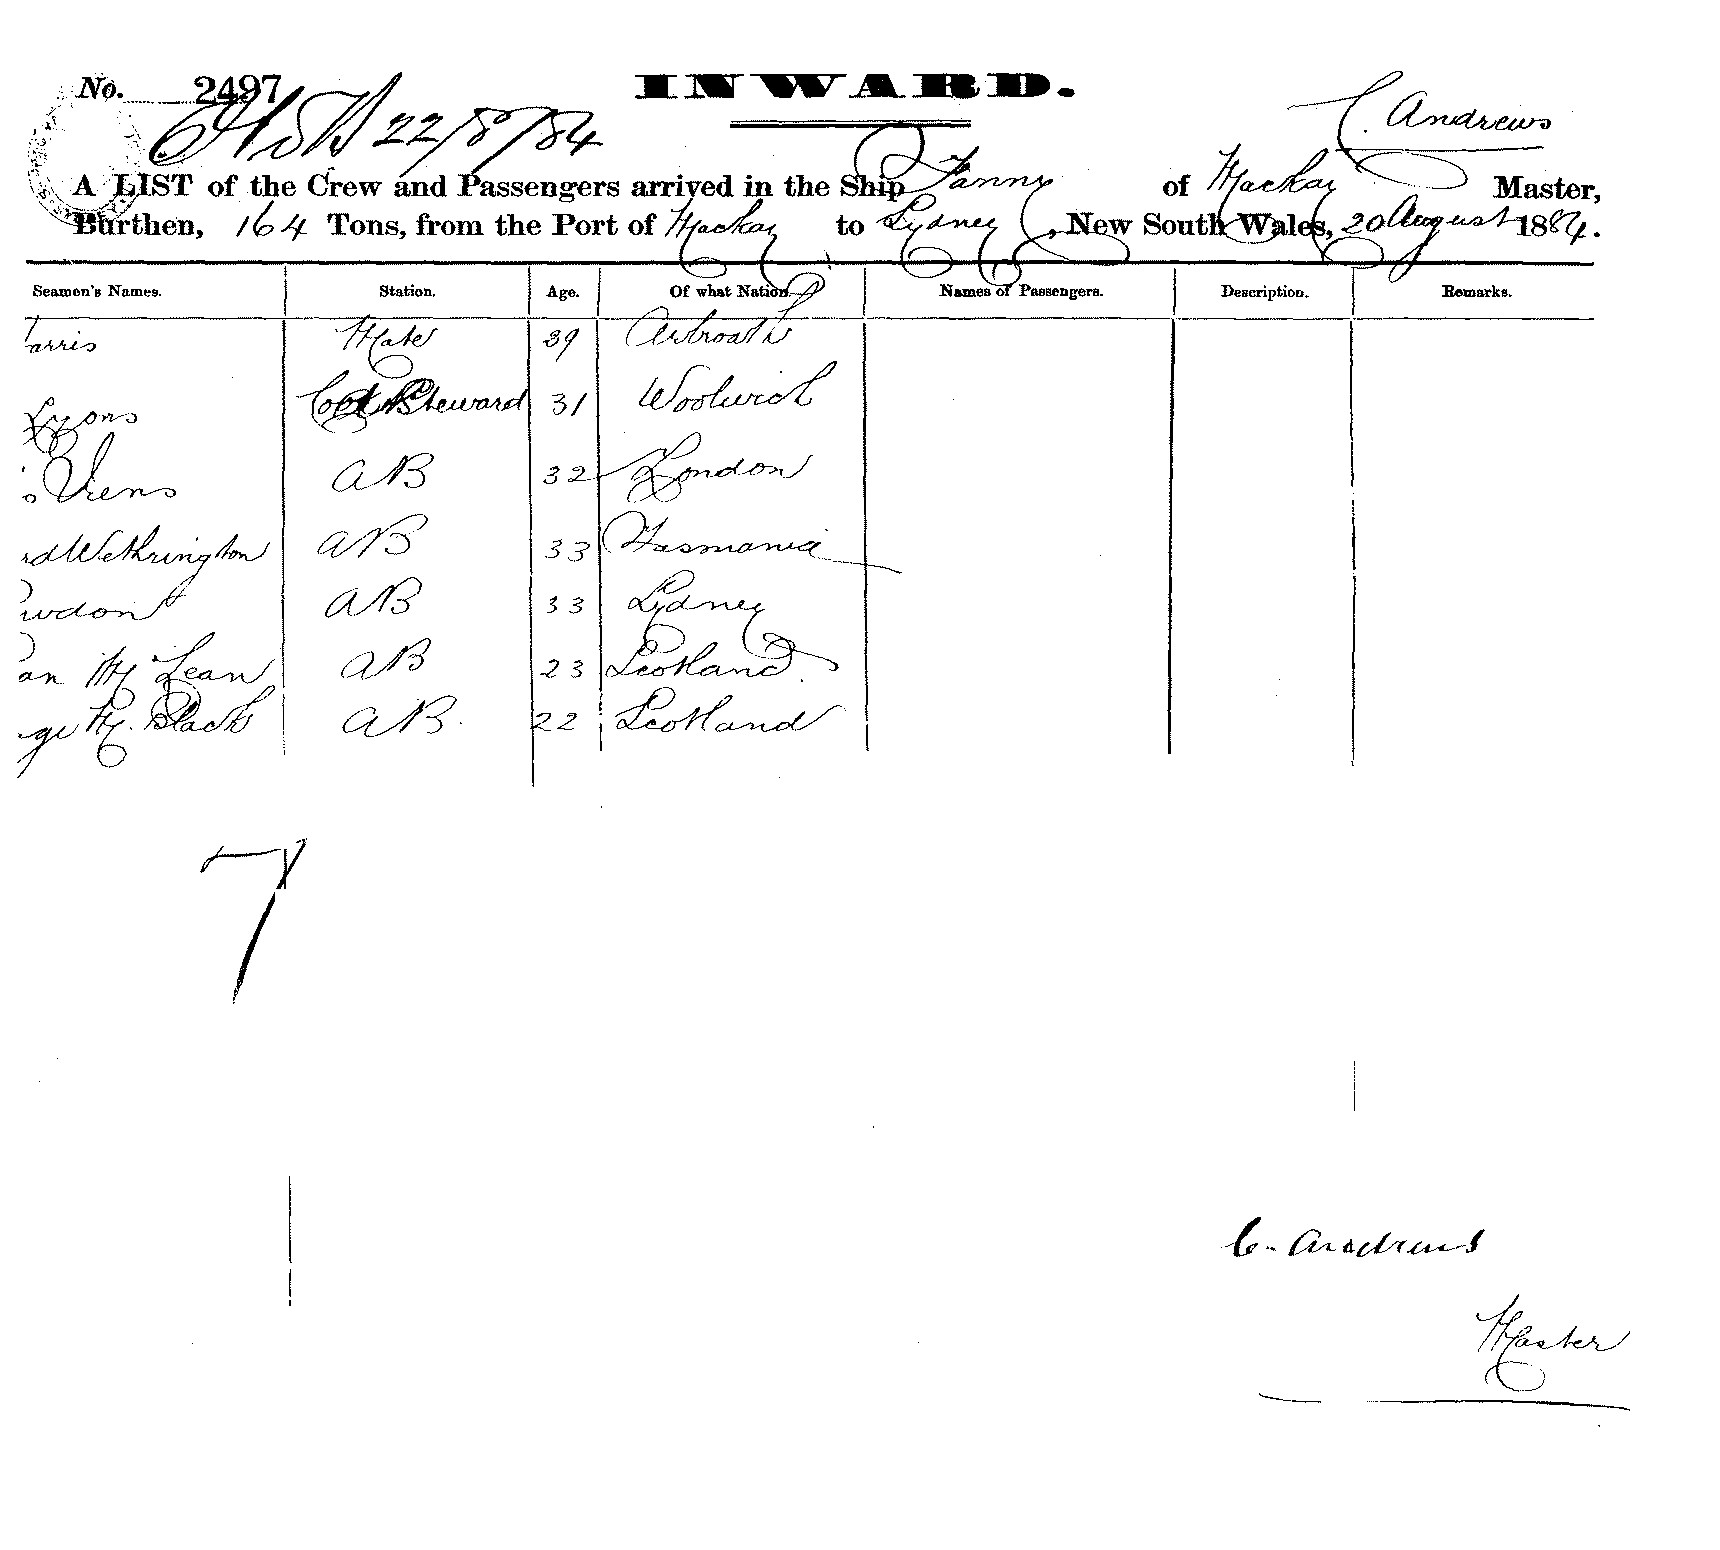 No. 2497 INWARD.
22/8/84 C. Andrews
A LIST of the Crew and Passengers arrived in the Ship Fanny of Mackay Master,
Burthen, 164 Tons, from the Port of Mackay to Sydney, New South Wales, 20 August 1884.
Seamen's Names. Station. Age. Of what Nation. Names of Passengers. Description. Remarks.
arris Mate 39 Arbroath
Lyons Cook & Steward 31 Woolwich
AB 32 London
rd Wethrington AB 33 Tasmania
wdon AB 33 Sydney
an Mc Lean AB 23 Scotland.
ge Mc. Black AB. 22 Scotland
7
C. Andrews
Master